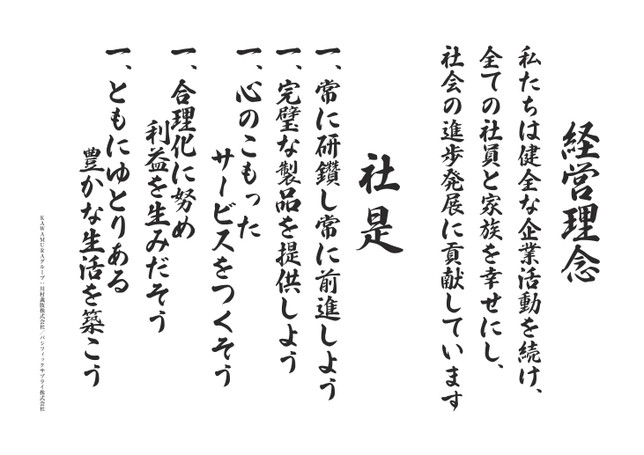 経営理念
私たちは健全な企業活動を続け、
全ての社員と家族を幸せにし、
社会の進歩発展に貢献しています
社是
一、常に研鑽し常に前進しよう
一、完璧な製品を提供しよう
一、心のこもった
サービスをつくそう
一、合理化に努め
利益を生みだそう
一、ともにゆとりある
豊かな生活を築こう
KAWAMURAグループ・川村義肢株式会社／パシフィックサプライ株式会社